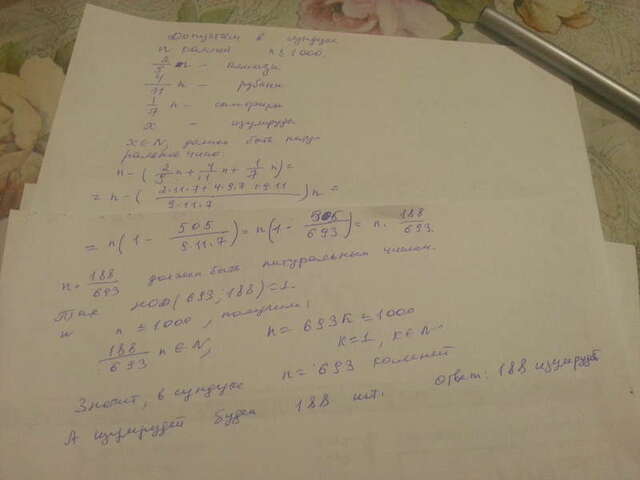 Допустим в сундуке
n камней n ≤ 1000.
2/9 n - алмазы
4/11 n - рубины
1/7 n - сапфиры
x - изумруды
x ∈ N, должен быть нату-
ральное число.
n - (2/9 n + 4/11 n + 1/7 n) =
= n - (2·11·7 + 4·9·7 + 9·11 / 9·11·7) n =
= n(1 - 505/9·11·7) = n(1 - 505/693) = n · 188/693.
n · 188/693 должен быть натуральным числом.
Так НОД(693; 188) = 1.
и n ≤ 1000, получим,
188/693 n ∈ N, n = 693k ≤ 1000
k = 1, k ∈ N.
Значит, в сундуке n = 693 камней
А изумрудов будет 188 шт. Ответ: 188 изумрудов